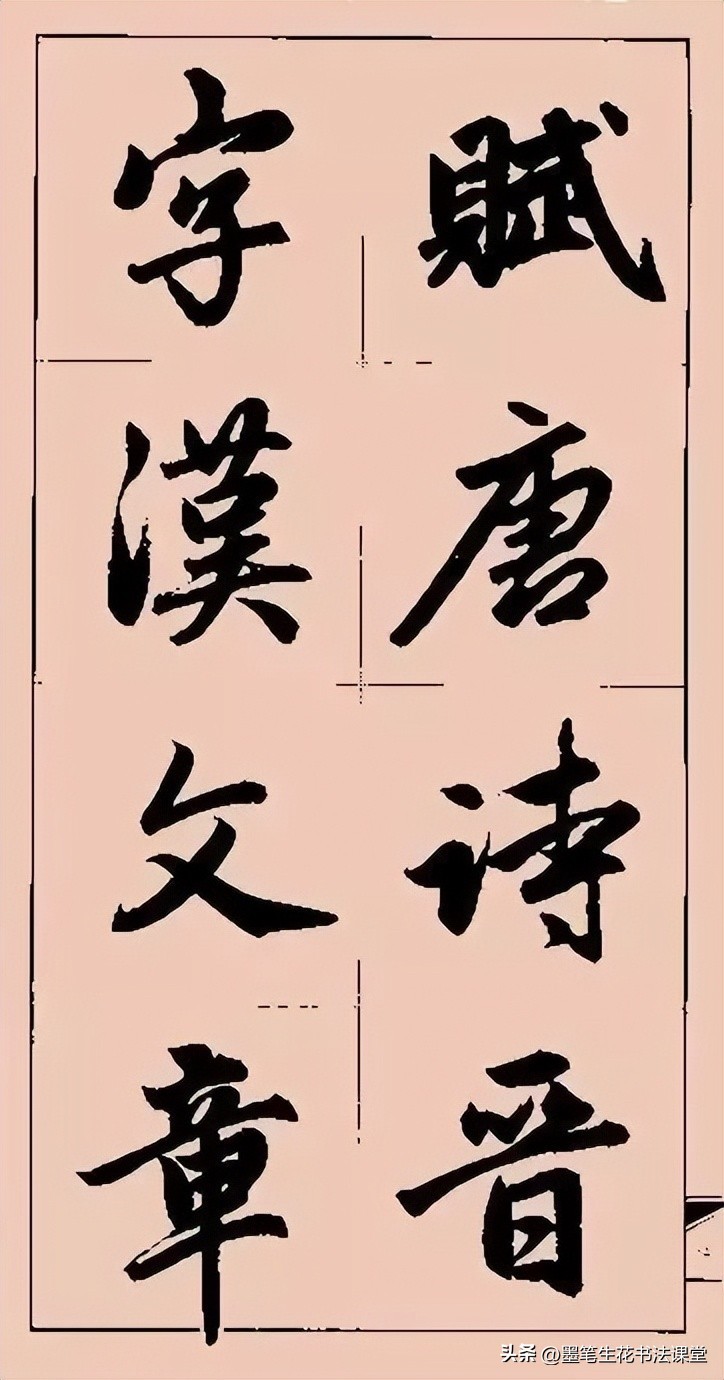 賦唐詩晋
字漢文章
头条 @墨笔生花书法课堂